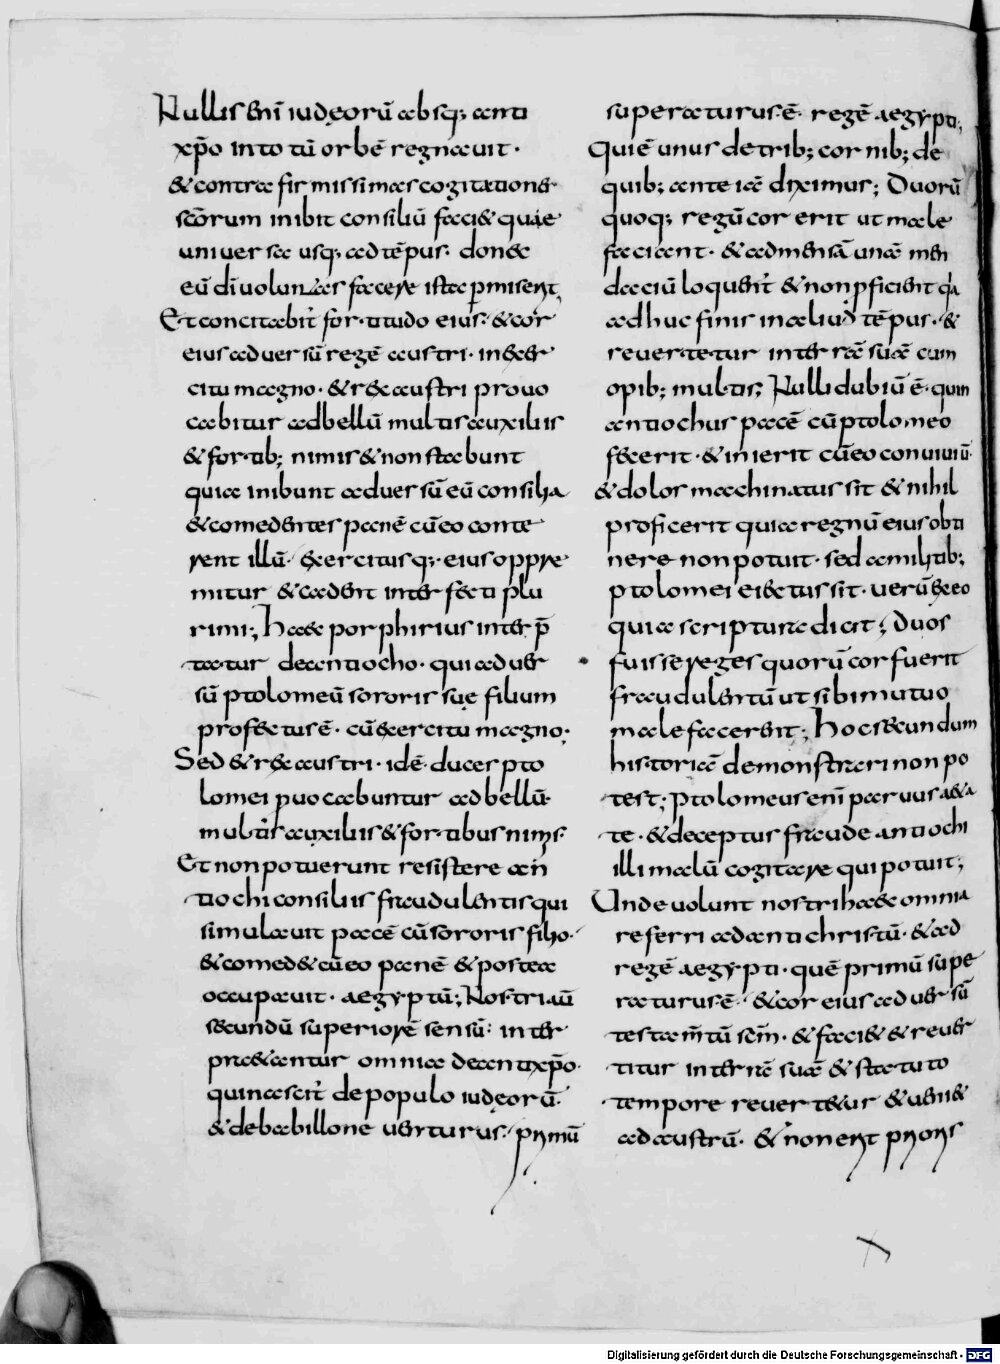 Nullus eni iudęorū absq; anti
xp̄o in totū orbē regnauit ·
& contra firmissimas cogitationes
scōrum inibit consiliū faci& quae
uniuersa usq; ad tēpus · donec
eū dī uoluntas facere ista ꝑmiserit;
Et concitabit̄ fortitudo eius · & cor
eius aduersū regē austri · in exer
citu magno · & rex austri prouo
cabitur ad bellū multis auxiliis
& fortib; nimis & non stabunt
quia inibunt aduersū eū consilia
& comedentes panē cū eo conte
rent illū · exercitusq; eius oppri
mitur & cadent interfecti plu
rimi; Haec porphirius interp̄
tatur de antiocho · qui aduer
sū ptolomeū sororis suę filium
profectus ē · cū exercitu magno ·
Sed & rex austri · idē duces pto
lomei ꝓuocabuntur ad bellū
multis auxiliis & fortibus nimis ·
Et non potuerunt resistere an
tiochi consiliis fraudulentis qui
simulauit pacē cū sororis filio ·
& comed& cū eo panē & postea
occupauit · aegyptū; Nostri aū
secundū superiorē sensū · inter
pra&antur omnia de antixp̄o
qui nascit̄ de populo iudęorū ·
& de babillone uenturus · primū
superaturus ē · regē aegypti;
Qui ē unus de trib; cornib; de
quib; ante iā diximus; Duorū
quoq; regū cor erit ut male
faciant · & ad mensā unā men
daciū loquent̄ & non ꝓficient q̄a
adhuc finis in aliud tēpus · &
reuertetur in terrā suā cum
opib; multis; Nulli dubiū ē · quin
antiochus pacē cū ptolomeo
fecerit · & inierit cū eo conuiuiū
& dolos machinatus sit & nihil
proficerit quia regnū eius obti
nere non potuit · sed a militib;
ptolomei eiectus sit · uerū ex eo
quia scriptura dicit; Duos
fuisse reges quorū cor fuerit
fraudulentū ut sibi mutuo
male facerent; Hoc secundum
historiā demonstrari non po
test; Ptolomeus eni paruus aeta
te · & deceptus fraude antiochi
illi malū cogitare qui potuit;
Unde uolunt nostri haec omnia
referri ad antichristū · & ad
regē aegypti · quē primū supe
raturus ē · & cor eius aduersū
testam̄tū scm̄ · & faci& & reuer
titur in terrā suā & statuto
tempore reuert&ur & ueni&
ad austrū · & non erit prioris
Digitalisierung gefördert durch die Deutsche Forschungsgemeinschaft - DFG